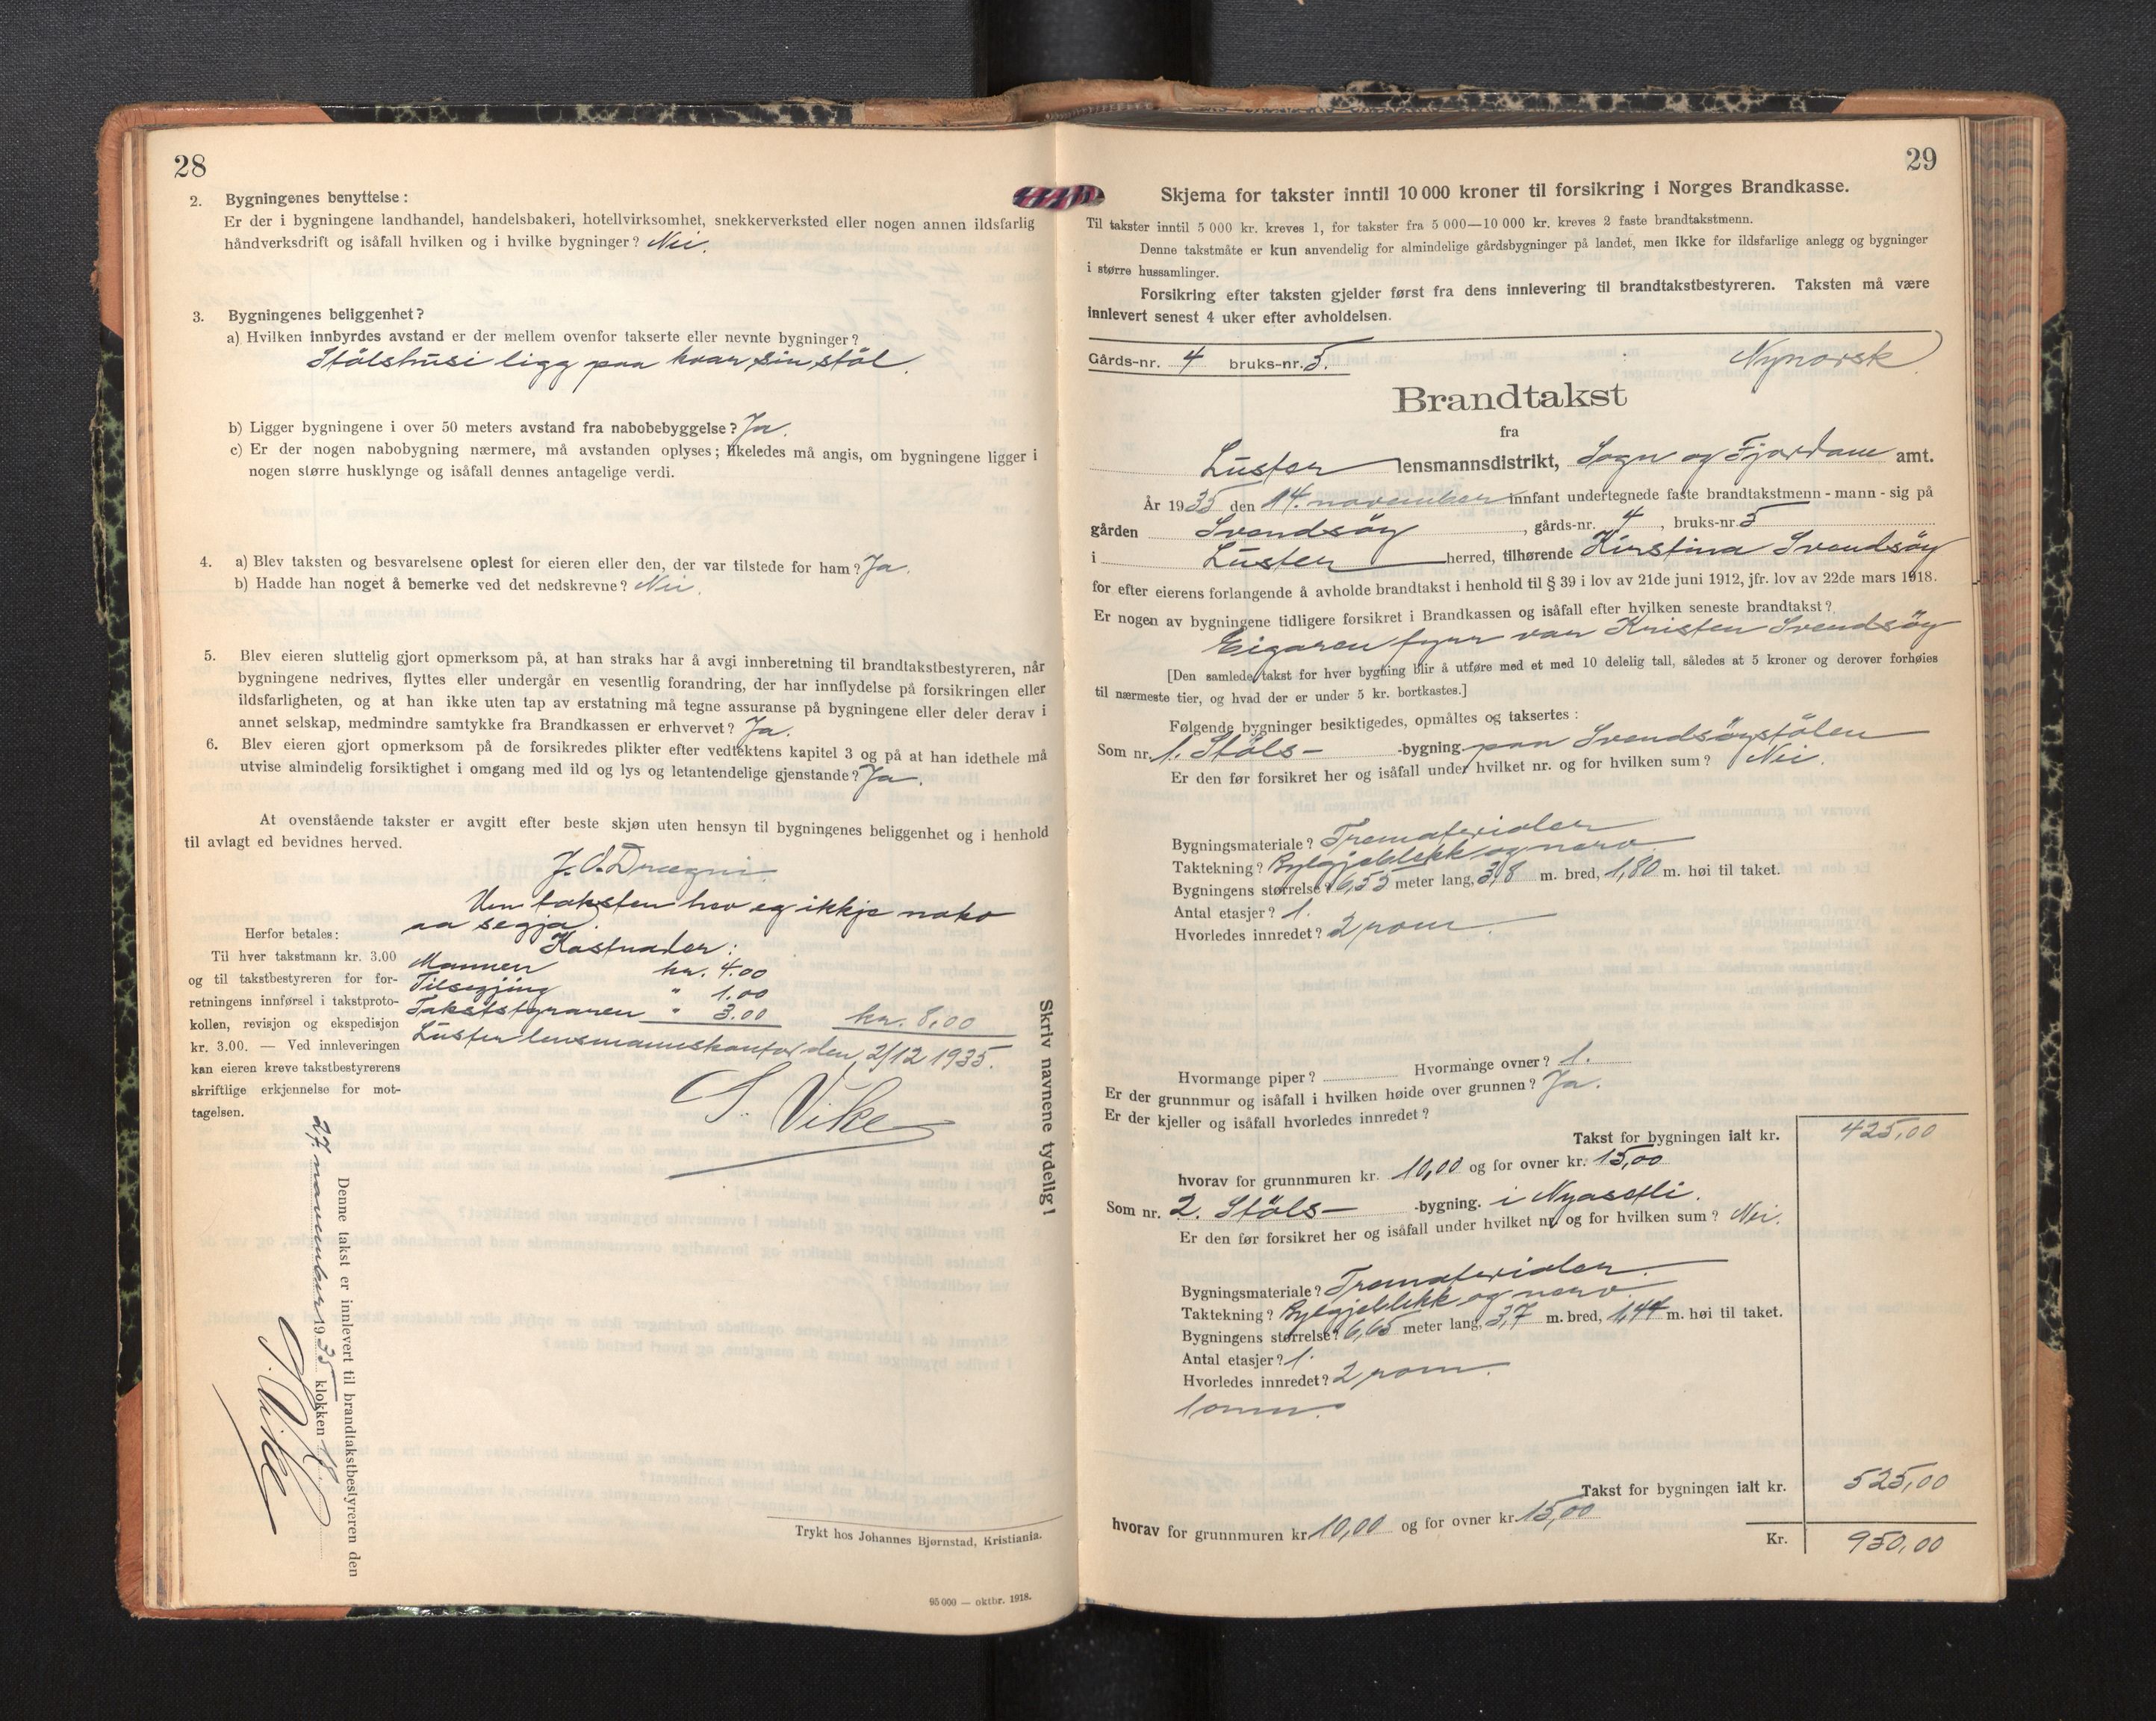 28
2. Bygningenes benyttelse:
Er der i bygningene landhandel, handelsbakeri, hotellvirksomhet, snekkerverksted eller nogen annen ildsfarlig
håndverksdrift og isåfall hvilken og i hvilke bygninger? Nei.
3. Bygningenes beliggenhet?
a) Hvilken innbyrdes avstand er der mellem ovenfor takserte eller nevnte bygninger?
Stölshusi ligg paa kvar sin stöl.
b) Ligger bygningene i over 50 meters avstand fra nabobebyggelse? Ja.
c) Er der nogen nabobygning nærmere, må avstanden oplyses; likeledes må angis, om bygningene ligger i
nogen større husklynge og isåfall dennes antagelige verdi.
4. a) Blev taksten og besvarelsene oplest for eieren eller den, der var tilstede for ham? Ja.
b) Hadde han noget å bemerke ved det nedskrevne? Nei.
5. Blev eieren sluttelig gjort opmerksom på, at han straks har å avgi innberetning til brandtakstbestyreren, når
bygningene nedrives, flyttes eller undergår en vesentlig forandring, der har innflydelse på forsikringen eller
ildsfarligheten, og at han ikke uten tap av erstatning må tegne assuranse på bygningene eller deler derav i
annet selskap, medmindre samtykke fra Brandkassen er erhvervet? Ja.
6. Blev eieren gjort opmerksom på de forsikredes plikter efter vedtektens kapitel 3 og på at han idethele må
utvise almindelig forsiktighet i omgang med ild og lys og letantendelige gjenstande? Ja.
At ovenstående takster er avgitt efter beste skjøn uten hensyn til bygningenes beliggenhet og i henhold
til avlagt ed bevidnes herved.
J. O. Drægni.
Um taksten hev eg ikkje noko
aa segja.
Kostnader:
Mannen kr. 4.00
Tilsegjing " 1.00
Takststyraren " 3.00 kr. 8,00
Luster lensmannskontor den 2/12 1935.
S. Vike
Herfor betales:
Til hver takstmann kr. 3.00
og til takstbestyreren for for-
retningens innførsel i takstproto-
kollen, revisjon og ekspedisjon
kr. 3.00. — Ved innleveringen
kan eieren kreve takstbestyrerens
skriftlige erkjennelse for mot-
tagelsen.
Skriv navnene tydelig!
Denne takst er innlevert til brandtakstbestyreren den
27. november 1935 klokken 18.
S. Vike
Trykt hos Johannes Bjørnstad, Kristiania.
95 000 — oktbr. 1918.
29
Skjema for takster inntil 10 000 kroner til forsikring i Norges Brandkasse.
Til takster inntil 5 000 kr. kreves 1, for takster fra 5 000—10 000 kr. kreves 2 faste brandtakstmenn.
Denne takstmåte er kun anvendelig for almindelige gårdsbygninger på landet, men ikke for ildsfarlige anlegg og bygninger
i større hussamlinger.
Forsikring efter taksten gjelder først fra dens innlevering til brandtakstbestyreren. Taksten må være
innlevert senest 4 uker efter avholdelsen.
Gårds-nr. 4 bruks-nr. 5. Nynorsk
Brandtakst
fra
Luster lensmannsdistrikt, Sogn og Fjordane amt.
År 1935 den 14. november innfant undertegnede faste brandtakstmenn - mann - sig på
gården Svendsöy, gårds-nr. 4, bruks-nr. 5
i Luster herred, tilhørende Kirstina Svendsöy
for efter eierens forlangende å avholde brandtakst i henhold til § 39 i lov av 21de juni 1912, jfr. lov av 22de mars 1918.
Er nogen av bygningene tidligere forsikret i Brandkassen og isåfall efter hvilken seneste brandtakst?
Eigaren fyrr var Kristen Svendsöy
[Den samlede takst for hver bygning blir å utføre med et med 10 delelig tall, således at 5 kroner og derover forhøies
til nærmeste tier, og hvad der er under 5 kr. bortkastes.]
Følgende bygninger besiktigedes, opmåltes og taksertes:
Som nr. 1. Stöls- -bygning. paa Svendsöystölen
Er den før forsikret her og isåfall under hvilket nr. og for hvilken sum? Nei.
Bygningsmateriale? Trematerialer
Taktekning? Bylgjeblekk og nærv.
Bygningens størrelse? 6,55 meter lang, 3,8 m. bred, 1,80 m. høi til taket.
Antal etasjer? 1.
Hvorledes innredet? 2 rom.
Hvormange piper? Hvormange ovner? 1.
Er der grunnmur og isåfall i hvilken høide over grunnen? Ja.
Er der kjeller og isåfall hvorledes innredet?
Takst for bygningen ialt kr. 425,00
hvorav for grunnmuren kr. 10,00 og for ovner kr. 15,00
Som nr. 2. Stöls- -bygning. i Nyasetli.
Er den før forsikret her og isåfall under hvilket nr. og for hvilken sum? Nei.
Bygningsmateriale? Trematerialer.
Taktekning? Bylgjeblekk og nærv.
Bygningens størrelse? 6,65 meter lang, 3,7 m. bred, 1,44 m. høi til taket.
Antal etasjer? 1.
Hvorledes innredet? 2 rom.
1 omn.
Takst for bygningen ialt kr. 525,00
hvorav for grunnmuren kr. 10,00 og for ovner kr. 15,00
Kr. 950,00